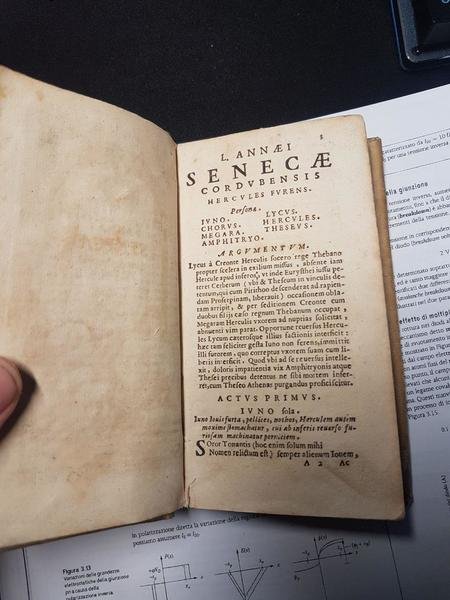 3
L. ANNÆI
SENECÆ
CORDVBENSIS
HERCVLES FVRENS.
Personæ.
IVNO. LYCVS.
CHORVS. HERCVLES.
MEGARA. THESEVS.
AMPHITRYO.
ARGVMENTVM.
Lycus à Creonte Herculis socero rege Thebano
propter scelera in exilium missus, absente iam
Hercule apud inferos, vt inde Eurysthei iussu pe-
teret Cerberum (vbi & Theseum in vinculis de-
tentum, qui cum Pirithoo descenderat ad rapien-
dam Proserpinam, liberauit) occasionem obla-
tam arripit, & per seditionem Creonte cum
duobus filijs cæso regnum Thebanum occupat,
Megaram Herculis vxorem ad nuptias solicitat,
abnuenti vim parat. Opportune reuersus Hercu-
les Lycum cæterosque illius factionis interficit:
hæc tam feliciter gesta Iuno non ferens, immittit
illi furorem, quo correptus vxorem suam cum li-
beris interficit. Quod vbi ad se reuersus intelle-
xit, doloris impatientia vix Amphitryonis atque
Thesei precibus detentus ne sibi mortem infer-
ret, cum Theseo Athenas purgandus proficiscitur.
ACTVS PRIMVS.
IVNO sola.
Iuno Iouis furta, pellices, nothos, Herculem autem
maxime stomachatur, cui ab inferis reuerso fu-
riosam machinatur perniciem.
Soror Tonantis (hoc enim solum mihi
Nomen relictum est) semper alienum Iouem,
A 2 Ac
della giunzione
In polarizzazione diretta la variazione della
possiamo assumere
Figura 3.13
Variazioni delle grandezze
elettrostatiche della giunzione
pn a causa della
polarizzazione inversa.
Figura 3.15.